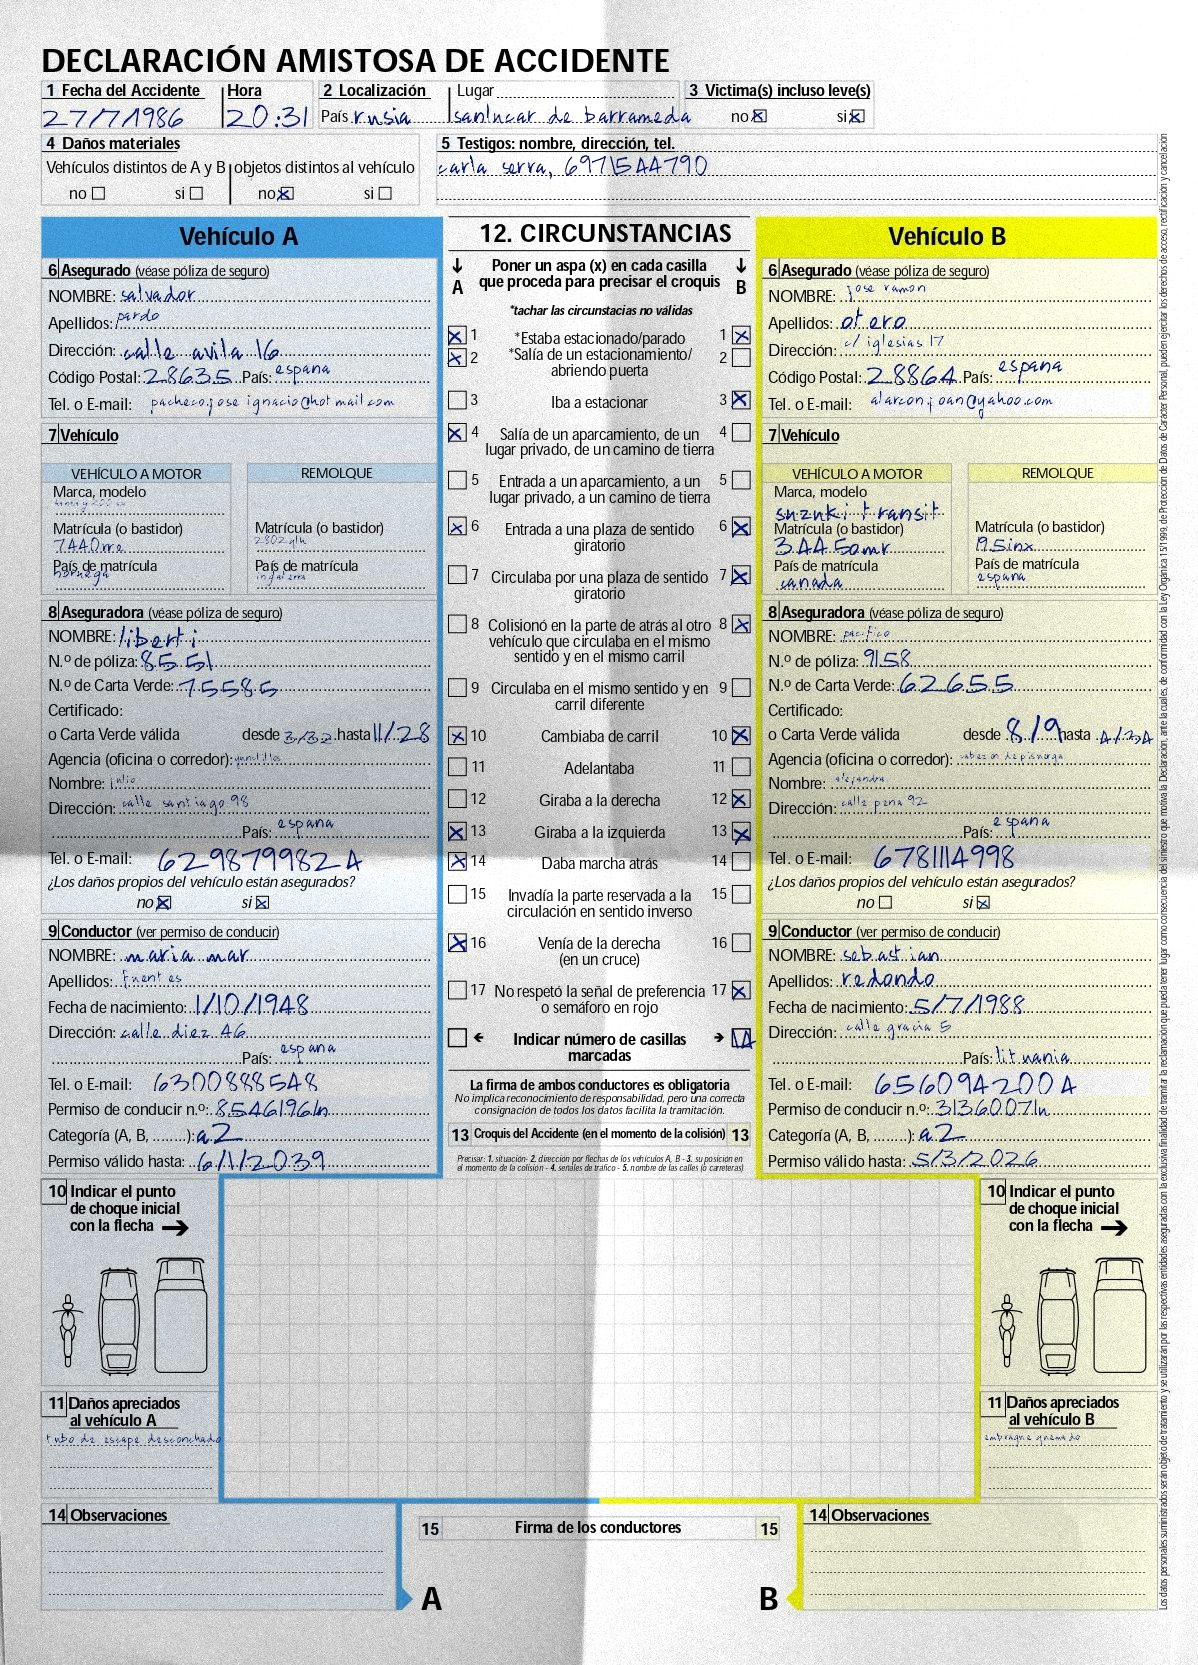 DECLARACIÓN AMISTOSA DE ACCIDENTE
1 Fecha del Accidente
27/7/1986
Hora
20:31
2 Localización
País rusia
Lugar
sanlucar de barrameda
3 Victima(s) incluso leve(s)
no si
4 Daños materiales
Vehículos distintos de A y B
no si
objetos distintos al vehículo
no si
5 Testigos: nombre, dirección, tel.
carla serra, 6971544790
Vehículo A
6 Asegurado (véase póliza de seguro)
NOMBRE: salvador
Apellidos: pardo
Dirección: calle avila 16
Código Postal: 28635 País: espana
Tel. o E-mail: pacheco.jose ignacio@hotmail.com
7 Vehículo
VEHÍCULO A MOTOR
Marca, modelo
Matrícula (o bastidor)
7440rra
País de matrícula
noruega
REMOLQUE
Matrícula (o bastidor)
País de matrícula
inglaterra
8 Aseguradora (véase póliza de seguro)
NOMBRE: liberti
N.º de póliza: 8551
N.º de Carta Verde: 75585
Certificado:
o Carta Verde válida desde 3/32 hasta 11/28
Agencia (oficina o corredor):
Nombre: julio
Dirección: calle santiago 98
País: espana
Tel. o E-mail: 6298799824
¿Los daños propios del vehículo están asegurados?
no si
9 Conductor (ver permiso de conducir)
NOMBRE: maria mar
Apellidos: fuentes
Fecha de nacimiento: 1/10/1948
Dirección: calle diez 46
País: espana
Tel. o E-mail: 6300888548
Permiso de conducir n.º: 8546196ln
Categoría (A, B, ........): a2
Permiso válido hasta: 6/1/2039
12. CIRCUNSTANCIAS
A
Poner un aspa (x) en cada casilla
que proceda para precisar el croquis
B
*tachar las circunstacias no válidas
1 *Estaba estacionado/parado 1
2 *Salía de un estacionamiento/ 2
abriendo puerta
3 Iba a estacionar 3
4 Salía de un aparcamiento, de un 4
lugar privado, de un camino de tierra
5 Entrada a un aparcamiento, a un 5
lugar privado, a un camino de tierra
6 Entrada a una plaza de sentido 6
giratorio
7 Circulaba por una plaza de sentido 7
giratorio
8 Colisionó en la parte de atrás al otro 8
vehículo que circulaba en el mismo
sentido y en el mismo carril
9 Circulaba en el mismo sentido y en 9
carril diferente
10 Cambiaba de carril 10
11 Adelantaba 11
12 Giraba a la derecha 12
13 Giraba a la izquierda 13
14 Daba marcha atrás 14
15 Invadía la parte reservada a la 15
circulación en sentido inverso
16 Venía de la derecha 16
(en un cruce)
17 No respetó la señal de preferencia 17
o semáforo en rojo
Indicar número de casillas 14
marcadas
La firma de ambos conductores es obligatoria
No implica reconocimiento de responsabilidad, pero una correcta
consignación de todos los datos facilita la tramitación.
13 Croquis del Accidente (en el momento de la colisión) 13
Precisar: 1. situación- 2. dirección por flechas de los vehículos A, B - 3. su posición en
el momento de la colisión - 4. señales de tráfico - 5. nombre de las calles (o carreteras)
Vehículo B
6 Asegurado (véase póliza de seguro)
NOMBRE: jose ramon
Apellidos: otero
Dirección: c/ iglesias 17
Código Postal: 28864 País: espana
Tel. o E-mail: alarconjoan@yahoo.com
7 Vehículo
VEHÍCULO A MOTOR
Marca, modelo
suzuki transit
Matrícula (o bastidor)
3445amr
País de matrícula
canada
REMOLQUE
Matrícula (o bastidor)
195inx
País de matrícula
espana
8 Aseguradora (véase póliza de seguro)
NOMBRE: pacifico
N.º de póliza: 9158
N.º de Carta Verde: 62655
Certificado:
o Carta Verde válida desde 8/9 hasta 4/34
Agencia (oficina o corredor): cabezon de pisuerga
Nombre: alejandra
Dirección: calle pena 92
País: espana
Tel. o E-mail: 6781114998
¿Los daños propios del vehículo están asegurados?
no si
9 Conductor (ver permiso de conducir)
NOMBRE: sebastian
Apellidos: redondo
Fecha de nacimiento: 5/7/1988
Dirección: calle gracia 5
País: lituania
Tel. o E-mail: 6560942004
Permiso de conducir n.º: 3136007ln
Categoría (A, B, ........): a2
Permiso válido hasta: 5/3/2026
10 Indicar el punto
de choque inicial
con la flecha
11 Daños apreciados
al vehículo A
tubo de escape desconchado
10 Indicar el punto
de choque inicial
con la flecha
11 Daños apreciados
al vehículo B
embrague quemado
14 Observaciones
15 Firma de los conductores 15
A B
14 Observaciones
Los datos personales suministrados serán objeto de tratamiento y se utilizarán por las respectivas entidades aseguradas con la exclusiva finalidad de tramitar la reclamación que pueda tener lugar como consecuencia del siniestro que motiva la Declaración, ante la cuales, de conformidad con la Ley Orgánica 15/1999, de Protección de Datos de Carácter Personal, pueden ejercitar los derechos de acceso, rectificación y cancelación